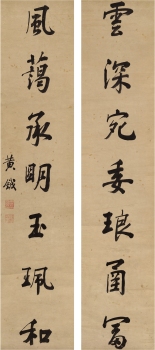 雲深宛委琅函富
風藹承明玉珮和
黃鉞